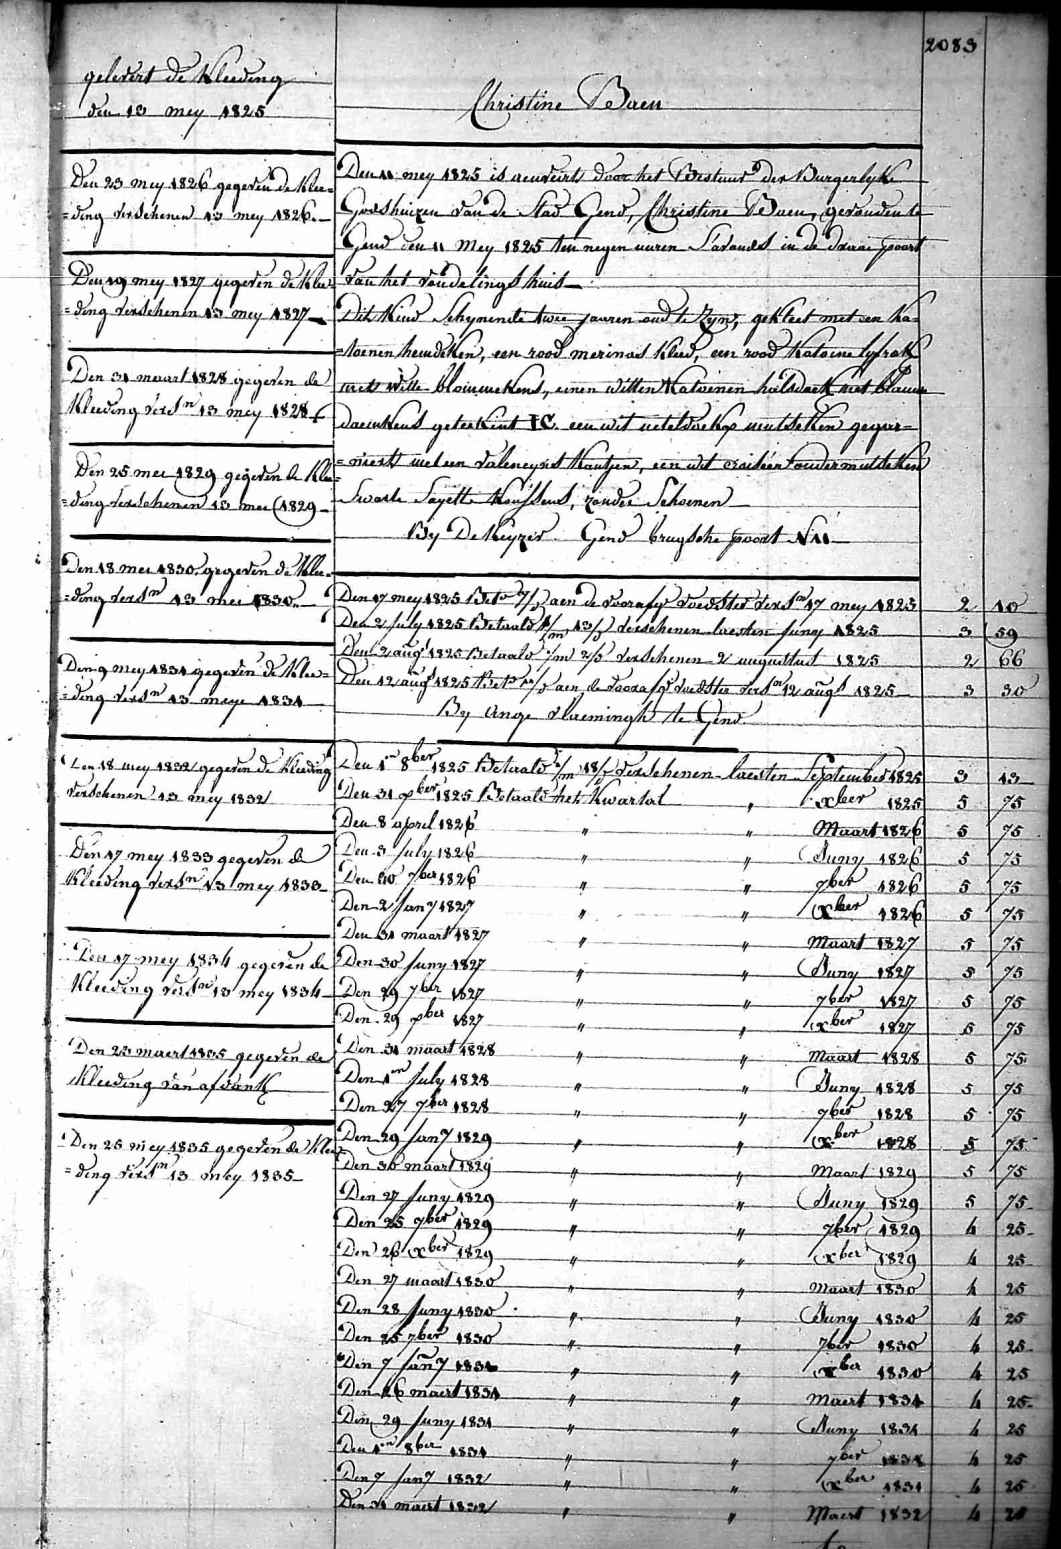 2083
gelevert de Kleeding
den 13 mey 1825
Christine Baen
Den 23 mey 1826 gegeven de Klee=
=ding verschenen 13 mey 1826.
Den 19 mey 1827 gegeven de Klee=
=ding verschenen 13 mey 1827
Den 31 maart 1828 gegeven de
Kleeding versn 13 mey 1828
Den 25 mei 1829 gegeven de Klee=
=ding verschenen 13 mei 1829
Den 18 mei 1830 gegeven de Klee=
=ding versn 13 mei 1830
Den 9 mey 1831 gegeven de Klee=
=ding versn 13 meye 1831
Den 18 mey 1832 gegeven de Kleeding
verschenen 13 mey 1832
Den 17 mey 1833 gegeven de
Kleeding versn 13 mey 1833
Den 17 mey 1834 gegeven de
Kleeding versn 13 mey 1834
Den 23 maert 1835 gegeven de
Kleeding van afdank
Den 25 mey 1835 gegeven de Klee
=ding versn 13 mey 1835
Den 11 mey 1825 is aenveirt door het Bestuur der Burgerlyke
Godshuizen van de Stad Gend, Christine Baen, gevonden te
Gend den 11 Mey 1825 ten negen uuren Savonds in de draai poort
van het vondelings huis
Dit Kind Schynende twee jaaren oud te zyn, gekleet met een Ka=
=toenen hemdeken, een rood merinos Kleed, een rood Katoene lyfrok
met witte bloimmekens, eenen witten Katoenen halsdoek met blauwe
daemkens geteekent I C. een wit neteldoekx mutseken gegar=
=neert met een valencynes Kantjen, een wit croiseé ondermutseken
Swarte Sayette Koussens, zonder Schoenen
By De Keyzer Gend brugsche poort N 11
Den 17 mey 1825 Beto 7/ aen de voorafg voedster versn 17 mey 1825 2 10
Den 2 July 1825 Betaald 1/m 13/ verschenen laesten Juny 1825 3 59
Den 2 augt 1825 Betaald 1/m 2/ verschenen 2 augustus 1825 2 66
Den 12 augt 1825 Beto aen de voorafg voedster versn 12 augt 1825 3 30
By Ange Vlaemingh te Gend
Den 1n 8ber 1825 Betaald 1/m 18/ verschenen laesten September 1825 3 13
Den 31 xber 1825 Betaald het Kwartal " xber 1825 5 75
Den 8 april 1826 " " Maart 1826 5 75
Den 3 July 1826 " " Juny 1826 5 75
Den 30 7ber 1826 " " 7ber 1826 5 75
Den 2 Jany 1827 " " xber 1826 5 75
Den 31 maart 1827 " " Maart 1827 5 75
Den 30 Juny 1827 " " Juny 1827 5 75
Den 29 7ber 1827 " " 7ber 1827 5 75
Den 29 xber 1827 " " xber 1827 5 75
Den 31 maart 1828 " " Maart 1828 5 75
Den 1n July 1828 " " Juny 1828 5 75
Den 27 7ber 1828 " " 7ber 1828 5 75
Den 29 Jany 1829 " " xber 1828 5 75
Den 30 maart 1829 " " Maart 1829 5 75
Den 27 Juny 1829 " " Juny 1829 5 75
Den 25 7ber 1829 " " 7ber 1829 4 25
Den 26 xber 1829 " " xber 1829 4 25
Den 27 maart 1830 " " Maart 1830 4 25
Den 28 Juny 1830 " " Juny 1830 4 25
Den 25 7ber 1830 " " 7ber 1830 4 25
Den 7 Jany 1831 " " xber 1830 4 25
Den 26 maert 1831 " " Maert 1831 4 25
Den 29 Juny 1831 " " Juny 1831 4 25
Den 1n 8ber 1831 " " 7ber 1831 4 25
Den 7 Jany 1832 " " xber 1831 4 25
Den 31 maert 1832 " " Maert 1832 4 25